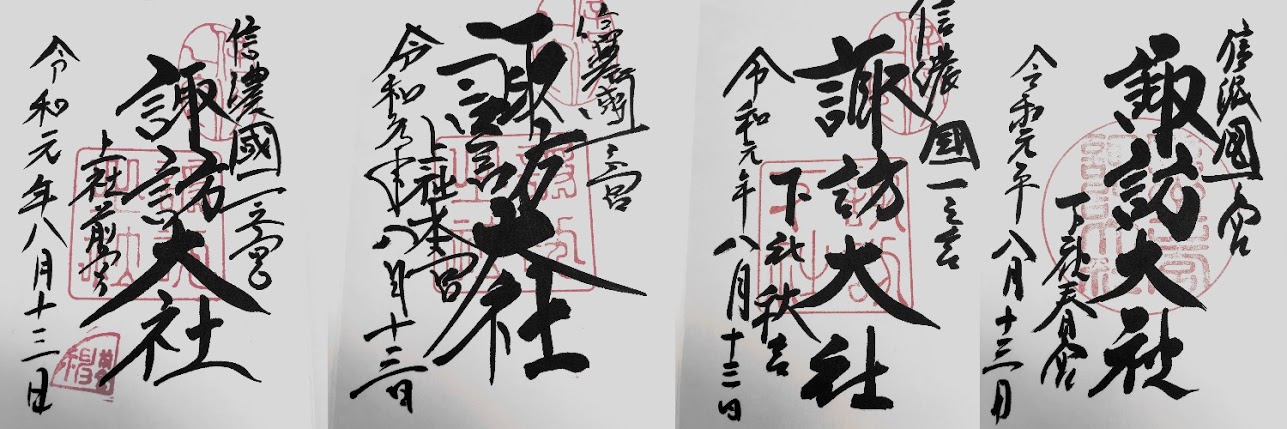 信濃國一之宮
諏訪大社
上社前宮
令和元年八月十三日
信濃國一之宮
諏訪大社
上社本宮
令和元年八月十三日
信濃國一之宮
諏訪大社
下社秋宮
令和元年八月十三日
信濃國一之宮
諏訪大社
下社春宮
令和元年八月十三日